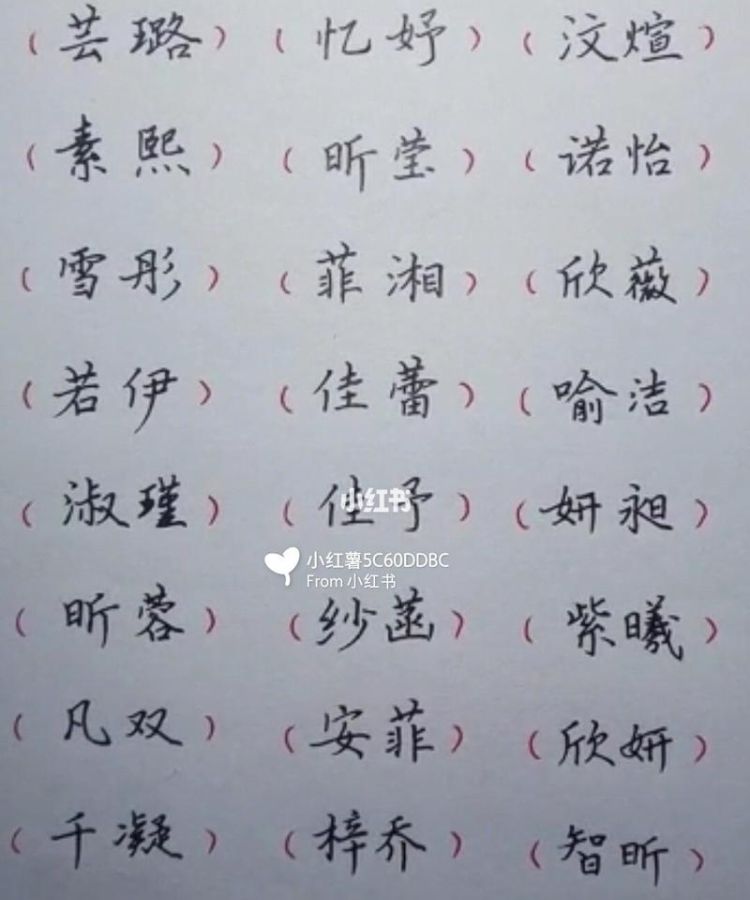 (芸璐) (忆妤) (汶煊)
(素熙) (昕莹) (诺怡)
(雪彤) (菲湘) (欣薇)
(若伊) (佳蕾) (喻洁)
(淑瑾) (佳予) (妍昶)
小红书
小红薯5C60DDBC
From 小红书
(昕蓉) (纱菡) (紫曦)
(凡双) (安菲) (欣妍)
(千凝) (梓乔) (智昕)